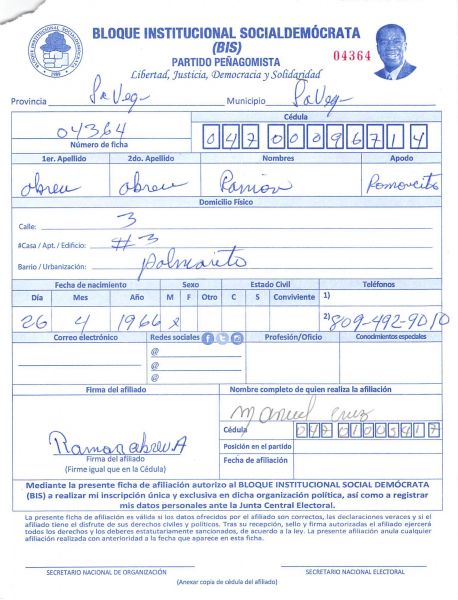 BLOQUE INSTITUCIONAL SOCIALDEMÓCRATA
(BIS)
PARTIDO PEÑAGOMISTA
Libertad, Justicia, Democracia y Solidaridad
04364
BLOQUE INSTITUCIONAL SOCIALDEMÓCRATA
Provincia La Vega Municipio La Vega
04364
Número de ficha
Cédula
047 0009671 4
1er. Apellido 2do. Apellido Nombres Apodo
Abreu Abreu Ramón Ramoncito
Domicilio Físico
Calle: 3
#Casa / Apt. / Edificio: #3
Barrio / Urbanización: Palmarito
Fecha de nacimiento Sexo Estado Civil Teléfonos
Día Mes Año M F Otro C S Conviviente 1)
26 4 1966 x 2) 809-492-9010
Correo electrónico Redes sociales Profesión/Oficio Conocimientos especiales
@
@
@
Firma del afiliado Nombre completo de quien realiza la afiliación
Manuel Cruz
Cédula
Posición en el partido
Fecha de afiliación
Ramon abreu A
Firma del afiliado
(Firme igual que en la Cédula)
Mediante la presente ficha de afiliación autorizo al BLOQUE INSTITUCIONAL SOCIAL DEMÓCRATA
(BIS) a realizar mi inscripción única y exclusiva en dicha organización política, así como a registrar
mis datos personales ante la Junta Central Electoral.
La presente ficha de afiliación es válida si los datos ofrecidos por el afiliado son correctos, las declaraciones veraces y si el
afiliado tiene el disfrute de sus derechos civiles y políticos. Tras su recepción, sello y firma autorizadas el afiliado ejercerá
todos los derechos y los deberes estatutariamente sancionados, de acuerdo a la ley. La presente afiliación anula cualquier
afiliación realizada con anterioridad a la fecha que aparece en esta ficha.
SECRETARIO NACIONAL DE ORGANIZACIÓN SECRETARIO NACIONAL ELECTORAL
(Anexar copia de cédula del afiliado)